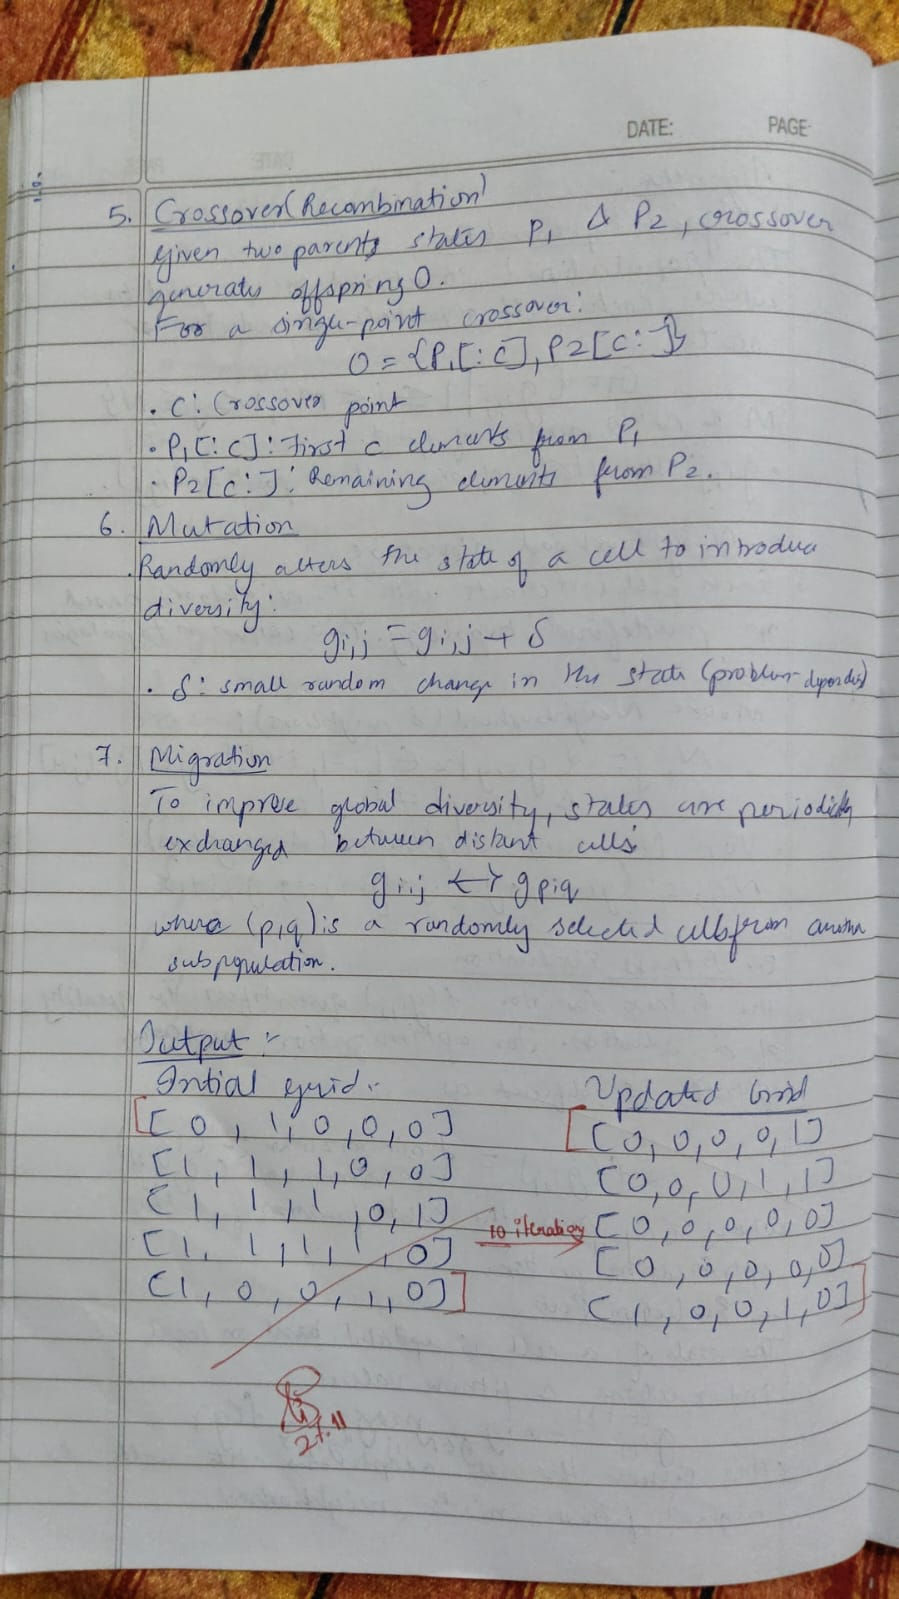 DATE: PAGE
5. Crossover (Recombination)
Given two parents states P1 & P2, crossover
generates offspring O.
For a single-point crossover:
O = {P1[:c], P2[c:]}
• C: Crossover point
• P1[:c]: First c elements from P1
• P2[c:]: Remaining elements from P2.
6. Mutation
• Randomly alters the state of a cell to introduce
diversity:
gi,j = gi,j + δ
• δ: small random change in the state (problem-dependent)
7. Migration
To improve global diversity, states are periodically
exchanged between distant cells
gi,j ↔ gp,q
where (p,q) is a randomly selected cell from another
subpopulation.
Output :-
Intial grid:-
[[0, 1, 0, 0, 0]
[1, 1, 1, 0, 0]
[1, 1, 1, 0, 1]
[1, 1, 1, 1, 0]
[1, 0, 0, 1, 0]]
iteration
Updated Grid
[[0, 0, 0, 0, 1]
[0, 0, 0, 1, 1]
[0, 0, 0, 0, 0]
[0, 0, 0, 0, 0]
[1, 0, 0, 1, 0]]
27.11